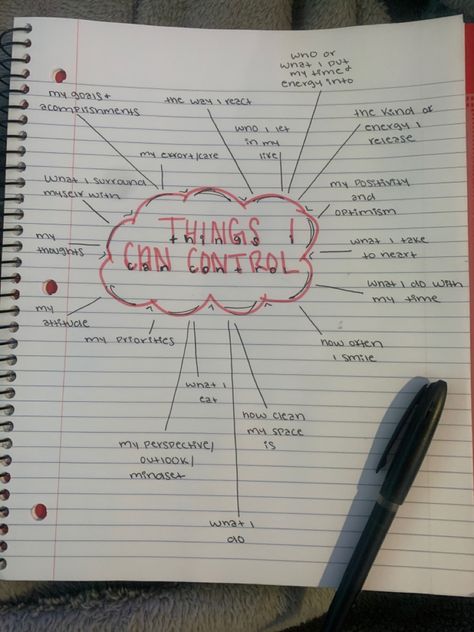 THINGS I
CAN CONTROL
things I
can control
who or
what i put
my time &
energy into
the way i react
who i let
in my
life
the kind of
energy i
release
my positivity
and
optimism
what i take
to heart
what i do with
my time
how often
i smile
how clean
my space
is
what i
do
what i
eat
my perspective/
outlook/
mindset
my priorities
my
attitude
my
thoughts
what i surround
myself with
my effort/care
my goals +
acomplishments